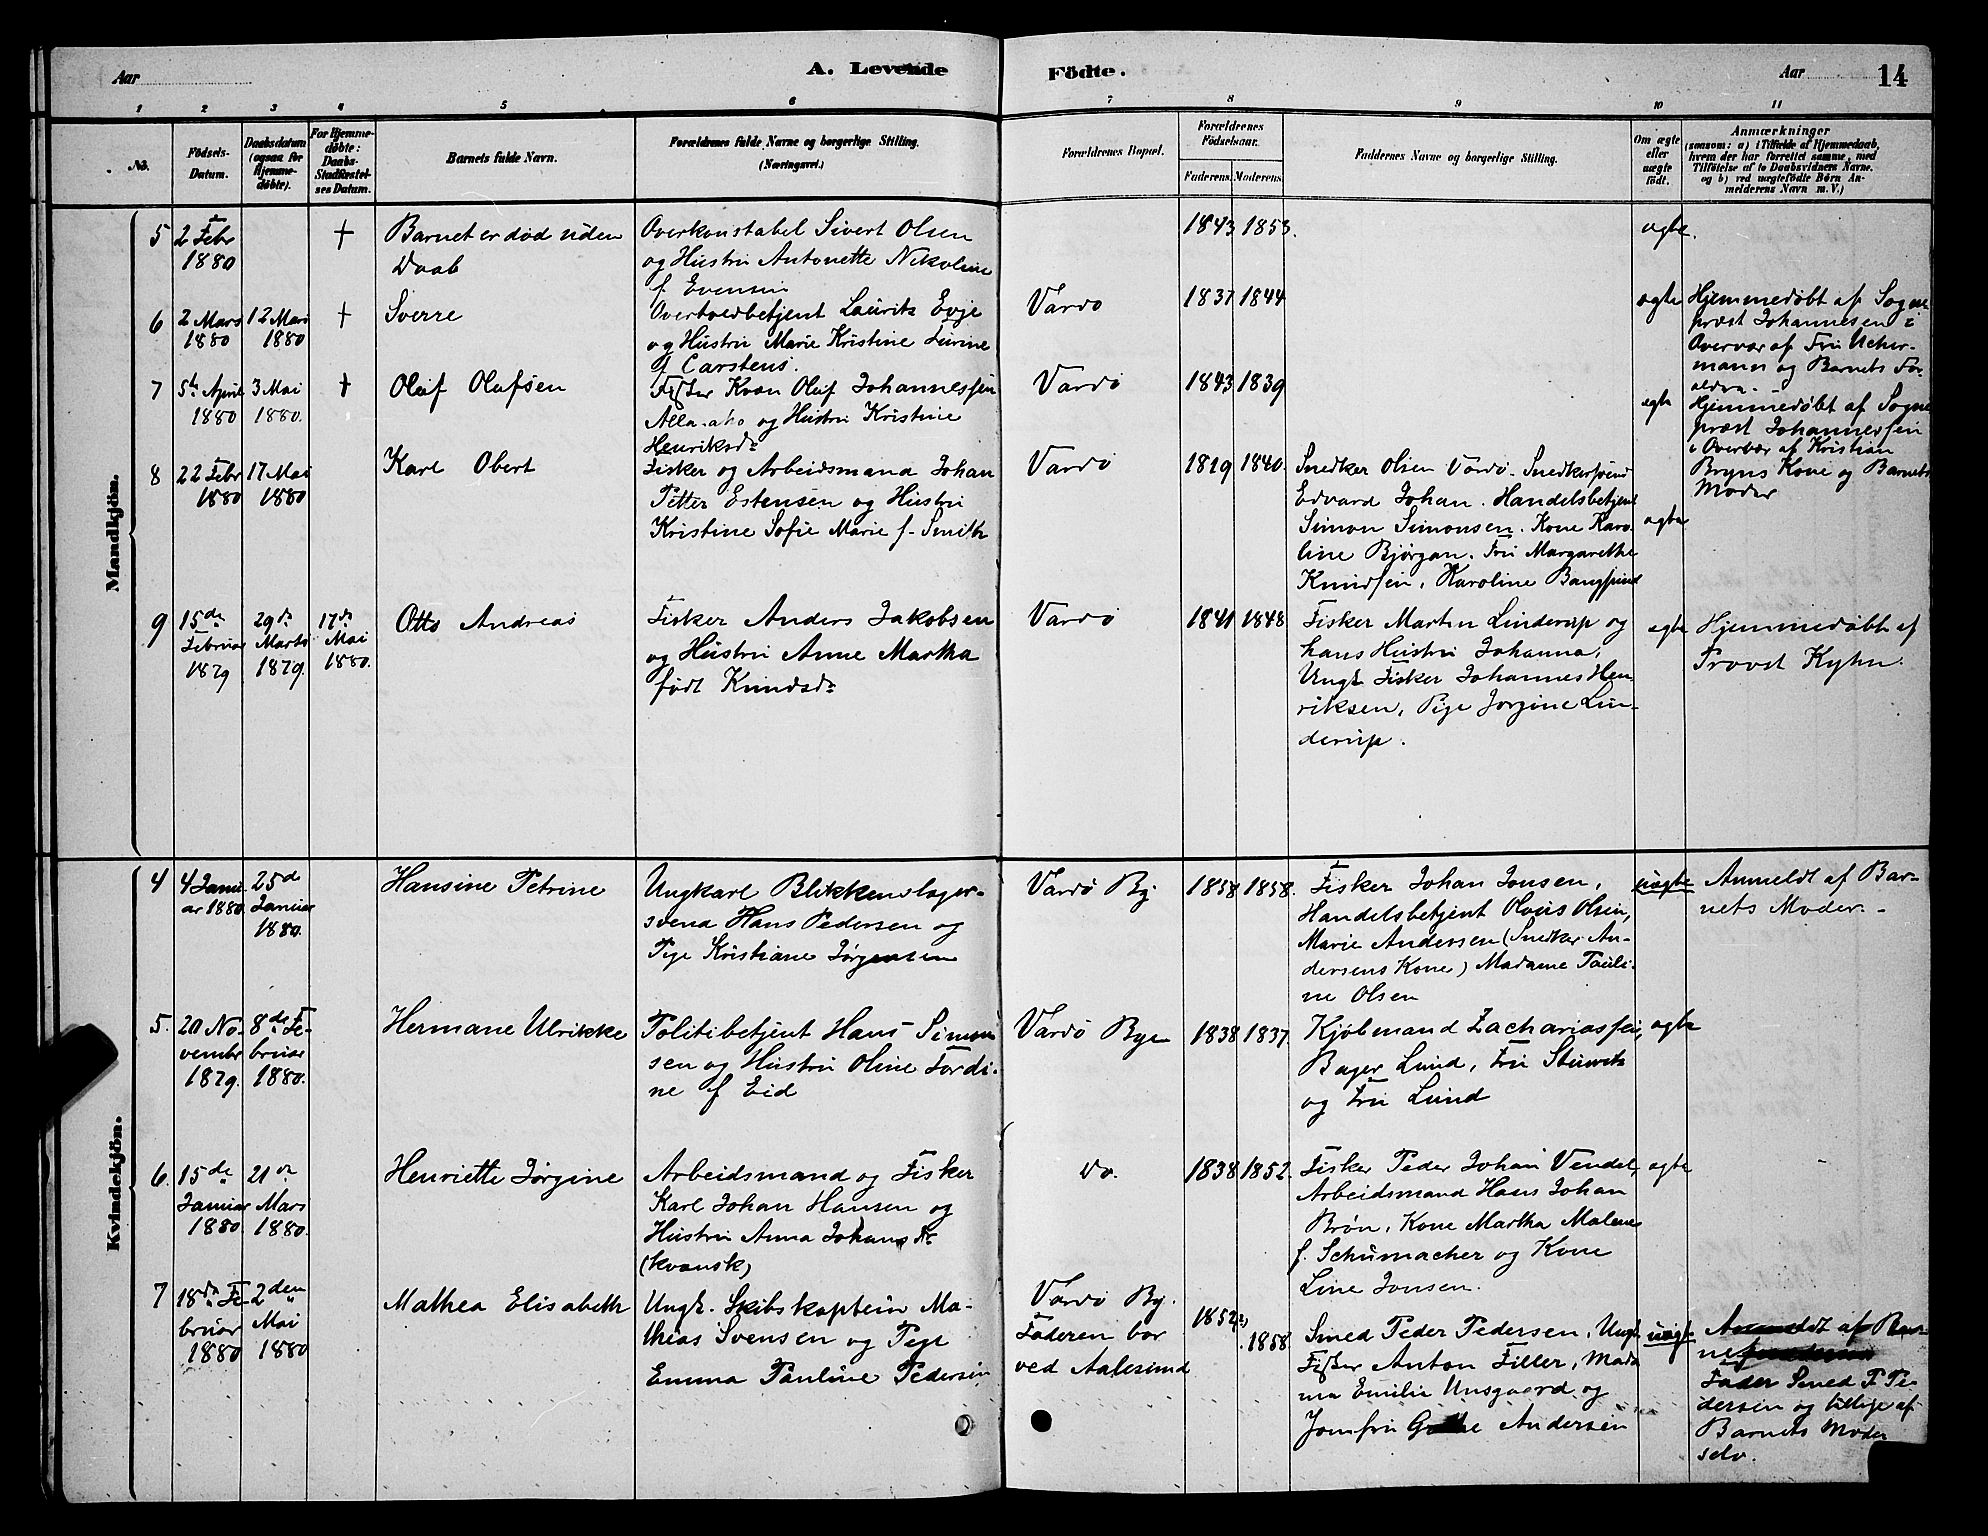 Aar
A. Levende
Födte.
Aar
14
1
2
3
4
5
6
7
8
9
10
11
No.
Födsels-
Datum.
Daabsdatum
(ogsaa for
Hjemme-
döbte).
For Hjemme-
döbte:
Daabs-
Stadfæstel-
ses Datum.
Barnets fulde Navn.
Forældrenes fulde Navne og borgerlige Stilling.
(Næringsvei.)
Forældrenes Bopæl.
Forældrenes
Födselsaar.
Faderens.
Moderens.
Faddernes Navne og borgerlige Stilling.
Om ægte
eller
uægte
födt.
Anmærkninger
(saasom: a) i Tilfælde af Hjemmedaab,
hvem der har forrettet samme, med
Tilföielse af to Daabsvidners Navne.
og b) ved uægtefödte Börn An-
melderens Navn m. V.)
Mandkjön.
5
2 Febr
1880
+
Barnet er død uden
Daab
Overkonstabel Sivert Olsen
og Hustru Antonette Nikoline
f. Evensen
1843
1853.
ægte.
6
2 Mars
1880
12 Mars
1880
+
Sverre
Overtoldbetjent Lauritz Evje
og Hustru Marie Kristine
f Carstens.
Vardø
1837
1844
ægte
Hjemmedøbt af Sogne
præst Johannesen i
Overvær af Fru Ucher-
mann og Barnets For
ældre.
7
5te April
1880
3 Mai
1880.
+
Olaf Olufsen
Fisker Kvæn Oluf Johannessen
og Hustru Kristine
Henriksdr
Vardø
1843
1839
egte
Hjemmedøbt af Sogne
præst Johannessen
i Overvær af Kristian
Bryns Kone og Barnets
Moder
8
22 Febr
1880
17 Mai
1880
Karl Obert
Fisker og Arbeidsmand Johan
Petter Estensen og Hustru
Kristine Sofie Marie f. Smith
Vardø
1819
1840.
Snedker Olsen Vardø. Snedkersvend
Edvard Johan. Handelsbetjent
Simon Simonsen. Kone Karo
line Bjørgan. Fru Margarethe
Knudsen, Karoline
ægte
9
15de
Februar
1879
29de
Marts
1879.
17de
Mai
1880.
Otto Andreas
Fisker Anders Jakobsen
og Hustru Anne Martha
født Knudsdr
Vardø
1841
1848
Fisker Martin Linderup og
hans Hustru Johanna,
Ungk. Fisker Johannes Hen
riksen, Pige Jørgine Lin-
derup.
egte
Hjemmedøbt af
Provst Kyhn.
Kvindekjön.
4
4 Janu
ar 1880.
25d
Januar
1880.
Hansine Petrine
Ungkarl Blikkenslager-
svend Hans Pedersen og
Pige Kristiane Jørgensen
Vardø By
1858
1858.
Fisker Johan Jonsen,
Handelsbetjent Olaus Olsen,
Marie Andersen (Snedker An-
dersens Kone) Madame Pauli-
ne Olsen
uægte
Anmeldt af Bar-
nets Moder. -
5.
20 No-
vembr
1879.
8de Fe-
bruar
1880.
Hermane Ulrikke
Politibetjent Hans Simon
sen og Hustru Oline Fordi-
ne f Eid
Vardø Bye
1838
1837
Kjøbmand Zachariassen,
Bager Lund, Fru
og Fru Lund
ægte
6.
15de
Januar
1880.
21de
Mars
1880.
Henriette Jørgine
Arbeidsmand og Fisker
Karl Johan Hansen og
Hustru Anna Johansdr.
(kvænsk)
do.
1838
1852.
Fisker Peder Johan Vendel,
Arbeidsmand Hans Johan
Brøn, Kone Martha Malene
f. Schumacher og Kone
Line Jonsen.
ægte
7
18de Fe-
bruar
1880
2den
Mai
1880
Mathea Elisabeth
Ungk. Skibskaptein Ma-
thias Svensen og Pige
Emma Pauline Pedersen
Vardø By.
Faderen bor
ved Aalesund
1852
1858
Smed Peder Pedersen, Ungk.
Fisker Anton Filler, Mada
ma Emilie Unsgaard og
Jomfru Andersen
uægte
Anmeldt af Bar-
Fader Smed P Pe-
dersen og tillige af
Barnets Moder
selv.